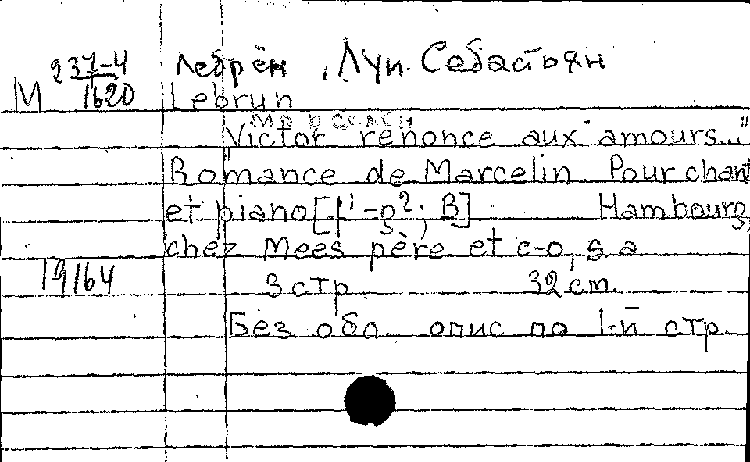 М 237-4/1620 Лебрён, Луи Себастьян
Lebrun
Марселен
"Victor renonce aux amours..."
Romance de Marcelin Pour chant
et piano [f¹-g²; B] Hambourg,
chez Mees père et c-o, s a
19164 3 стр 32 cm.
Без обл опис по 1-й стр.